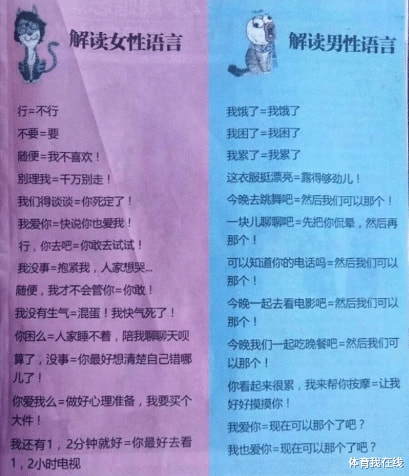 解读女性语言
行=不行
不要=要
随便=我不喜欢！
别理我=千万别走！
我们得谈谈=你死定了！
我爱你=快说你也爱我！
行，你去吧=你敢去试试！
我没事=抱紧我，人家想哭...
随便，我才不会管你=你敢！
我没有生气=混蛋！我快气死了！
你困么=人家睡着，陪我聊聊天呗
算了，没事=你最好想清楚自己错哪
儿了！
你爱我么=做好心理准备，我要买个
大件！
我还有1，2分钟就好=你最好去看
1，2小时电视
解读男性语言
我饿了=我饿了
我困了=我困了
我累了=我累了
这衣服挺漂亮=露得够劲儿！
今晚去跳舞吧=然后我们可以那个！
一块儿聊聊吧=先把你侃晕，然后再
那个！
可以知道你的电话吗=然后我们可以
那个！
今晚一起去看电影吧=然后我们可以
那个！
今晚我们一起吃晚餐吧=然后我们可
以那个！
你看起来很累，我来帮你按摩=让我
好好摸摸你！
我爱你=现在可以那个了吧？
我也爱你=现在可以那个了吧？
体育我在线